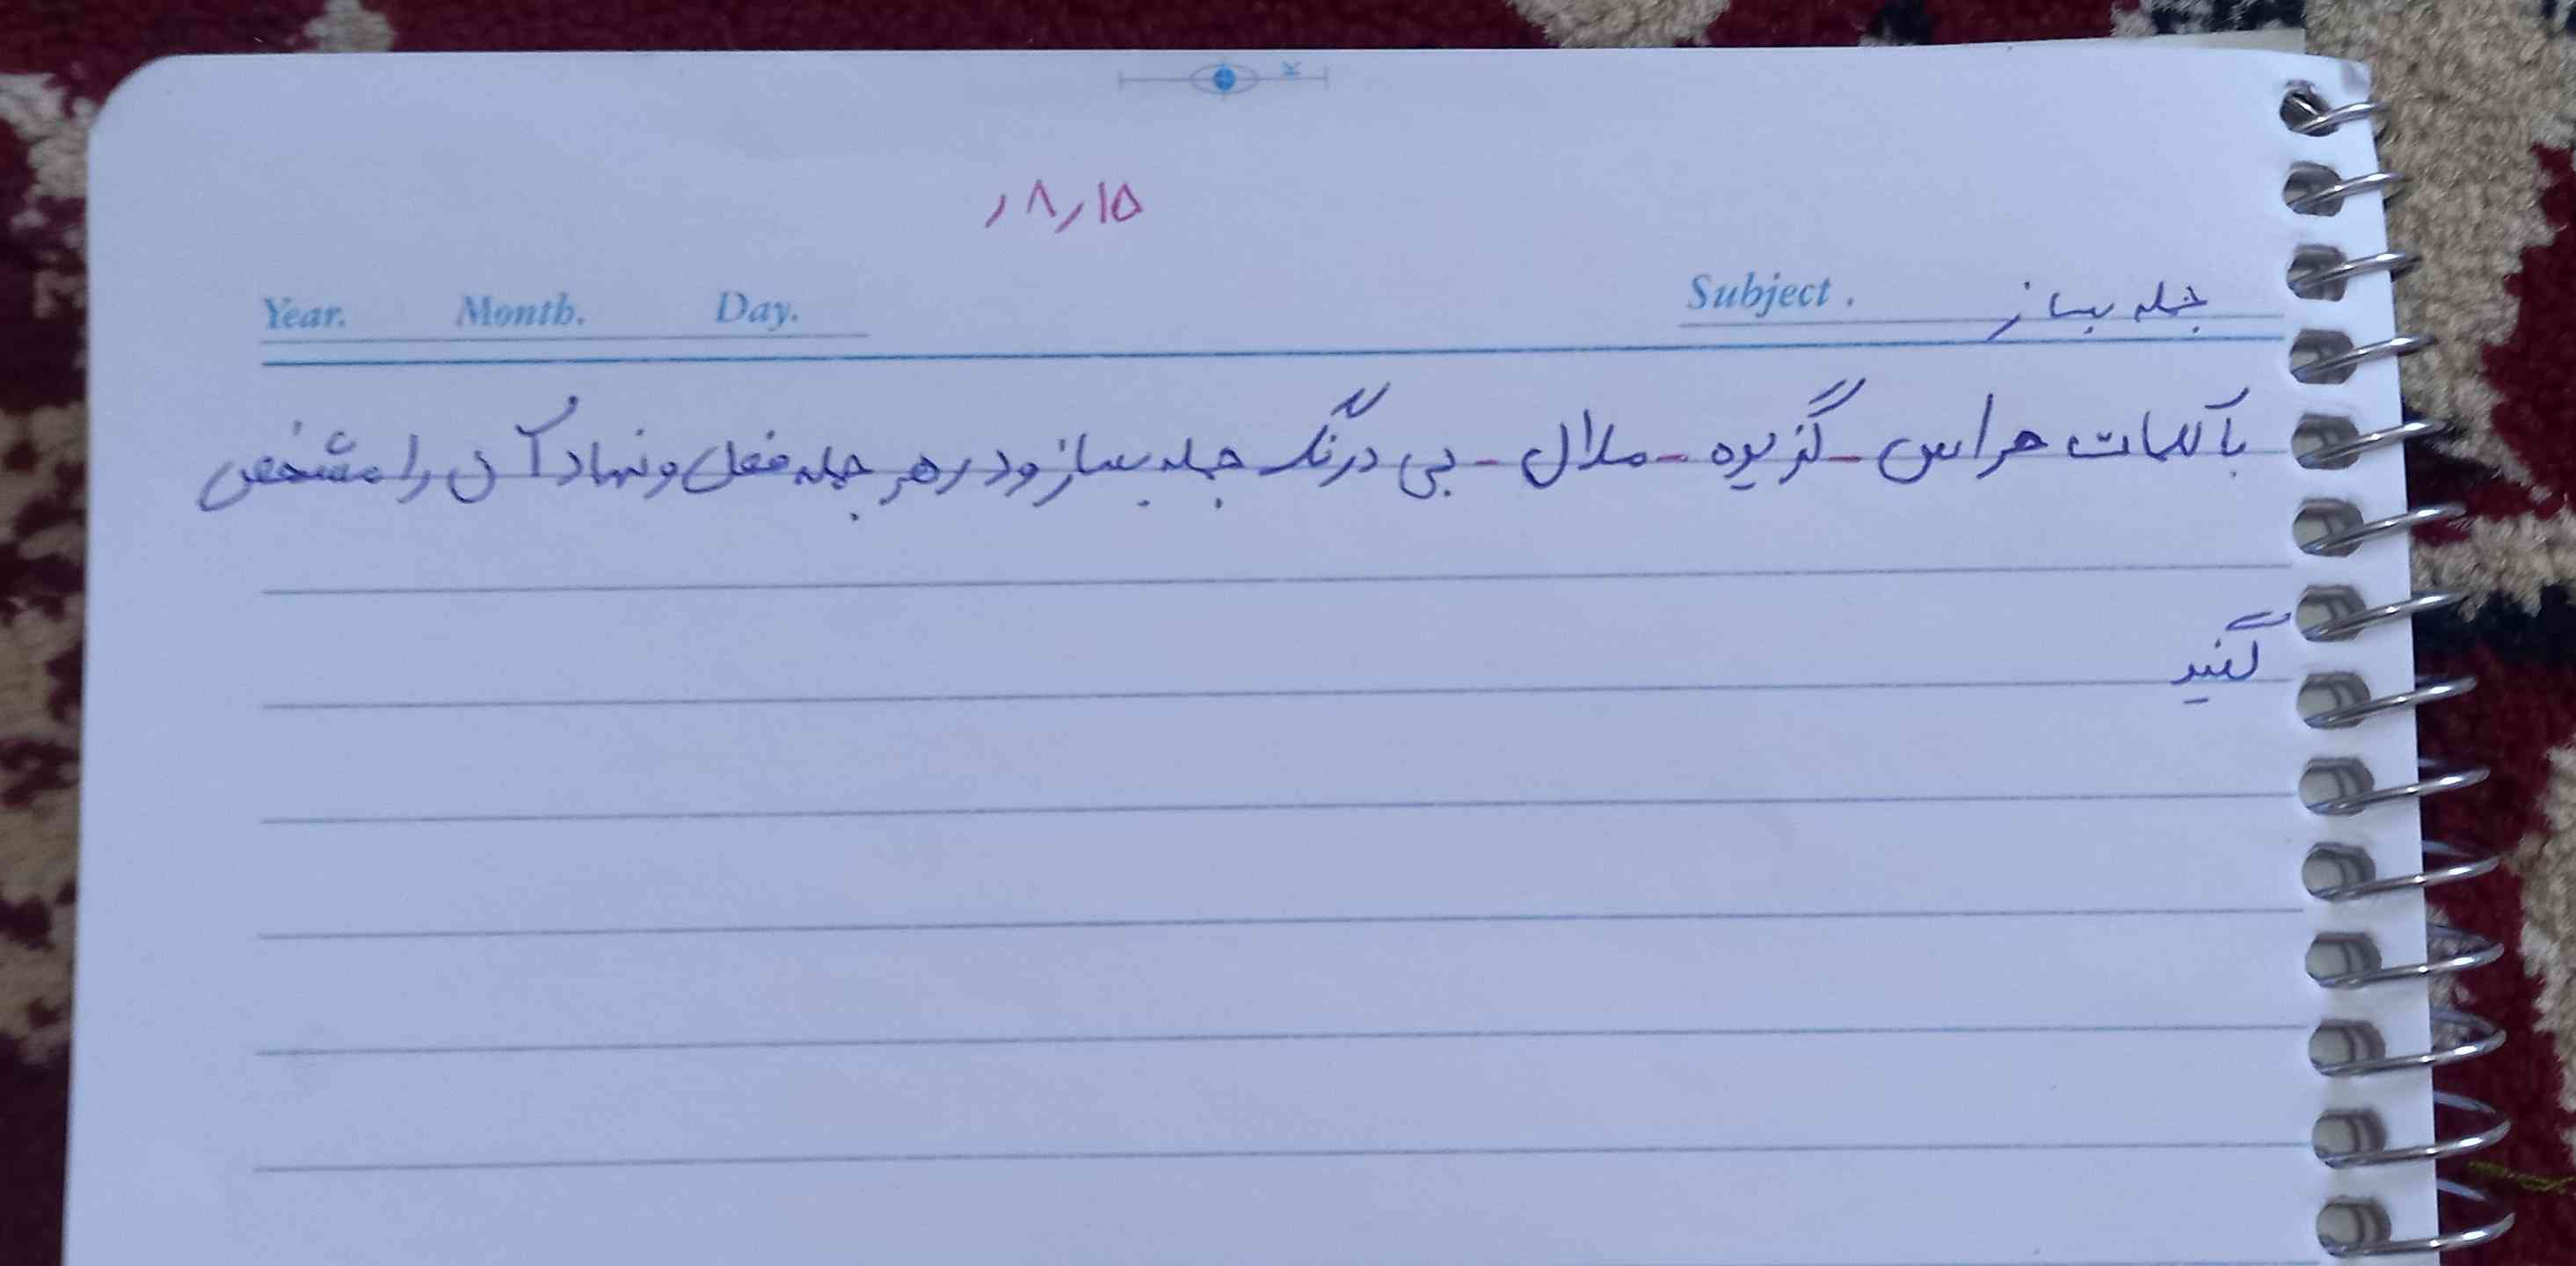 ۸٫۱۵٫
Year. Month. Day. Subject. جمله بساز
با کلمات هراس - گزیده - ملال - بی درنگ جمله بساز و در هر جمله فعل و نهاد آن را مشخص
کنید